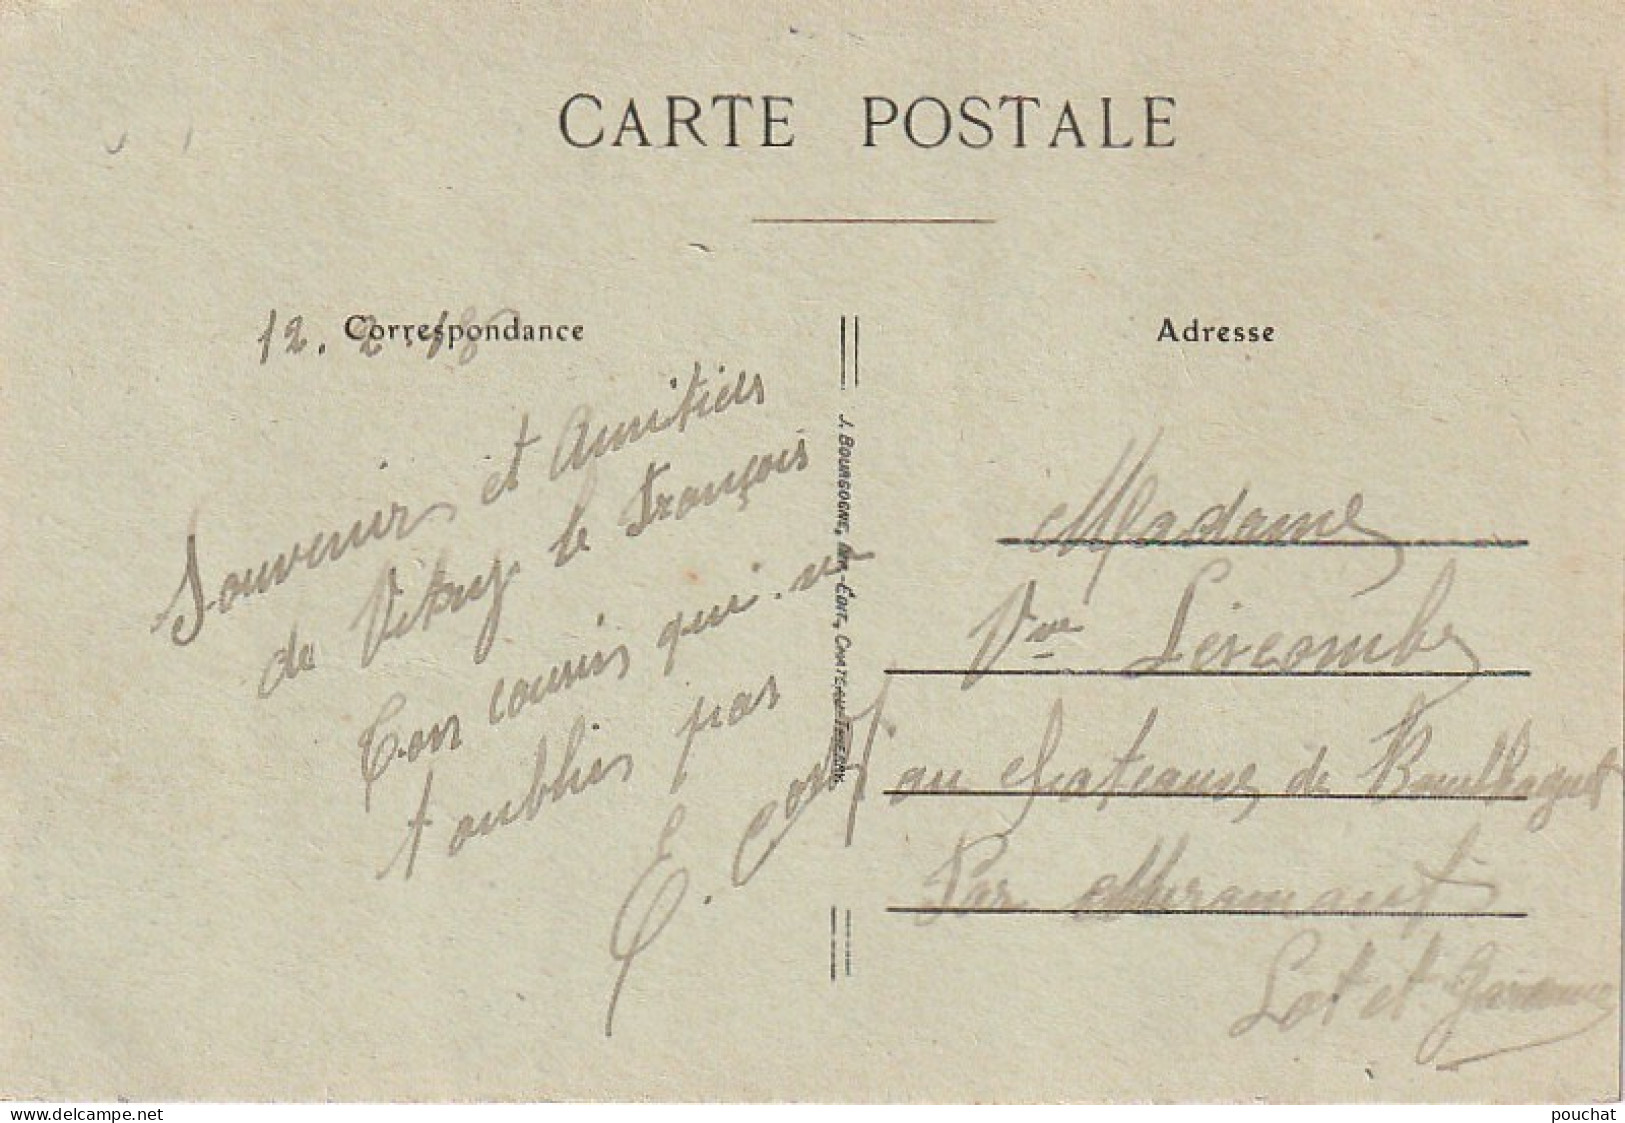 CARTE POSTALE
Correspondance
12. 2. 18
Souvenirs et Amitiés
de Vitry le François
Ton cousin qui ne
t oublies pas
E.
J. BOURGOGNE, IMP.-ÉDIT., CHATEAU-THIERRY
Adresse
Madame
Vve Lescombe
au chateaux de
Par Miramont
Lot et Garonne
www.delcampe.net
pouchat